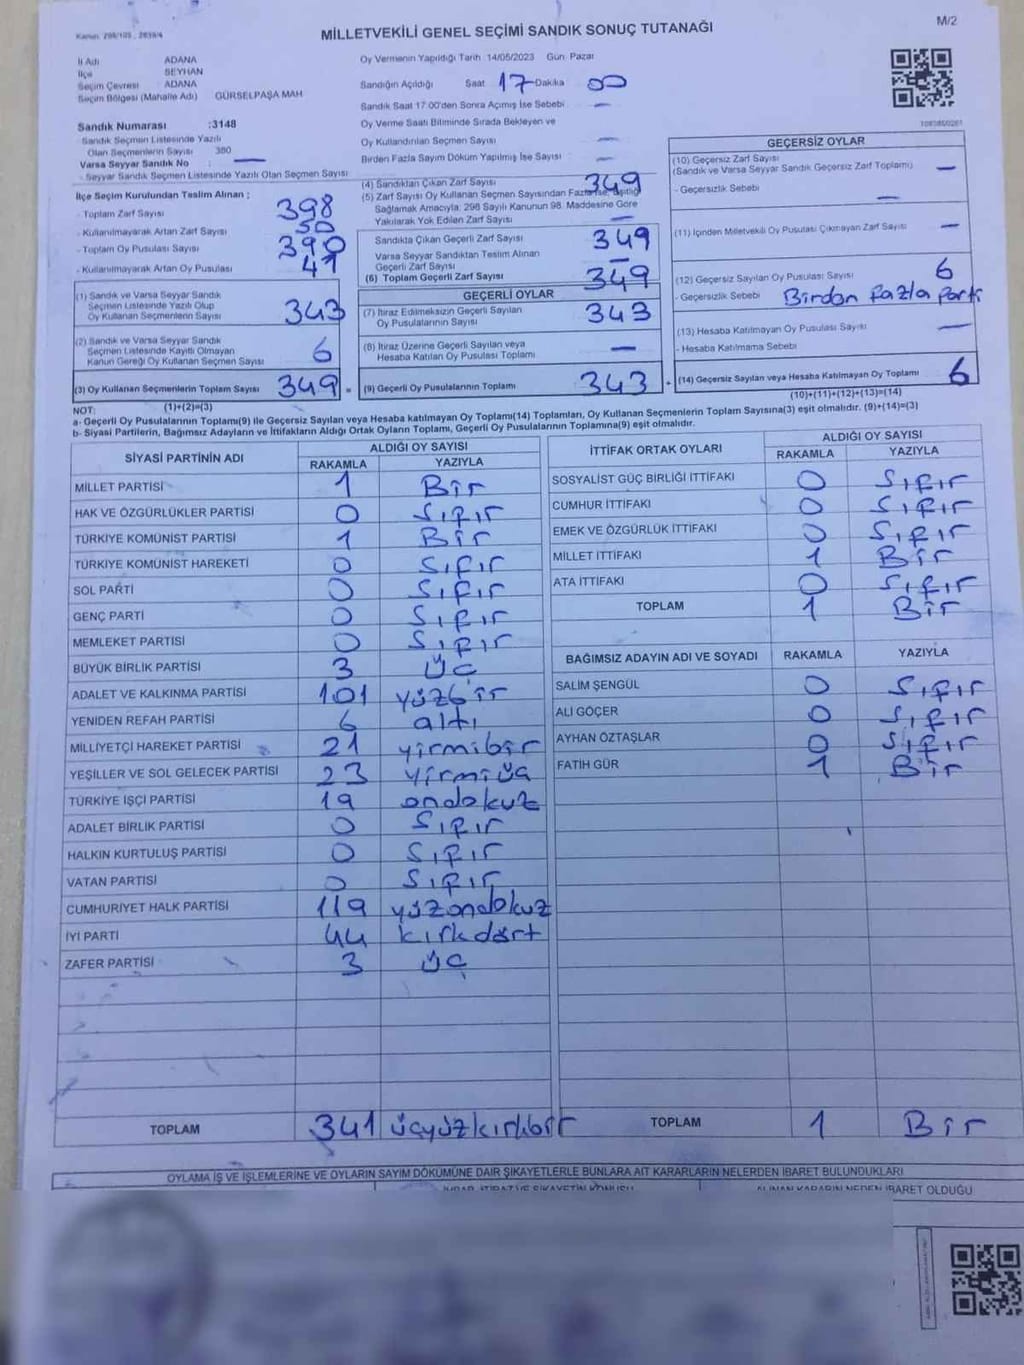 M/2
Kanun: 298/105 , 2839/4
MİLLETVEKİLİ GENEL SEÇİMİ SANDIK SONUÇ TUTANAĞI
İl Adı ADANA
İlçe SEYHAN
Seçim Çevresi ADANA
Seçim Bölgesi (Mahalle Adı) GÜRSELPAŞA MAH
Sandık Numarası :3148
Sandık Seçmen Listesinde Yazılı
Olan Seçmenlerin Sayısı 380
Varsa Seyyar Sandık No : —
- Seyyar Sandık Seçmen Listesinde Yazılı Olan Seçmen Sayısı
Oy Vermenin Yapıldığı Tarih :14/05/2023 Gün: Pazar
Sandığın Açıldığı Saat 17 Dakika 00
Sandık Saat 17:00'den Sonra Açılmış İse Sebebi —
Oy Verme Saati Bitiminde Sırada Bekleyen ve
Oy Kullandırılan Seçmen Sayısı —
Birden Fazla Sayım Döküm Yapılmış İse Sayısı —
İlçe Seçim Kurulundan Teslim Alınan ;
- Toplam Zarf Sayısı 398
- Kullanılmayarak Artan Zarf Sayısı 50
- Toplam Oy Pusulası Sayısı 390
- Kullanılmayarak Artan Oy Pusulası 41
(1) Sandık ve Varsa Seyyar Sandık
Seçmen Listesinde Yazılı Olup
Oy Kullanan Seçmenlerin Sayısı 343
(2) Sandık ve Varsa Seyyar Sandık
Seçmen Listesinde Kayıtlı Olmayan
Kanun Gereği Oy Kullanan Seçmen Sayısı 6
(3) Oy Kullanan Seçmenlerin Toplam Sayısı 349 =
(1)+(2)=(3)
(4) Sandıktan Çıkan Zarf Sayısı 349
(5) Zarf Sayısı Oy Kullanan Seçmen Sayısından Fazla İse, Eşitliği
Sağlamak Amacıyla, 298 Sayılı Kanunun 98. Maddesine Göre
Yakılarak Yok Edilen Zarf Sayısı —
Sandıkta Çıkan Geçerli Zarf Sayısı 349
Varsa Seyyar Sandıktan Teslim Alınan
Geçerli Zarf Sayısı —
(6) Toplam Geçerli Zarf Sayısı 349
GEÇERLİ OYLAR
(7) İtiraz Edilmeksizin Geçerli Sayılan
Oy Pusulalarının Sayısı 343
(8) İtiraz Üzerine Geçerli Sayılan veya
Hesaba Katılan Oy Pusulası Toplamı —
(9) Geçerli Oy Pusulalarının Toplamı 343 +
GEÇERSİZ OYLAR
(10) Geçersiz Zarf Sayısı
(Sandık ve Varsa Seyyar Sandık Geçersiz Zarf Toplamı) —
- Geçersizlik Sebebi —
(11) İçinden Milletvekili Oy Pusulası Çıkmayan Zarf Sayısı —
(12) Geçersiz Sayılan Oy Pusulası Sayısı 6
- Geçersizlik Sebebi Birden fazla parti
(13) Hesaba Katılmayan Oy Pusulası Sayısı —
- Hesaba Katılmama Sebebi
(14) Geçersiz Sayılan veya Hesaba Katılmayan Oy Toplamı 6
(10)+(11)+(12)+(13)=(14)
NOT:
a- Geçerli Oy Pusulalarının Toplamı(9) ile Geçersiz Sayılan veya Hesaba katılmayan Oy Toplamı(14) Toplamları, Oy Kullanan Seçmenlerin Toplam Sayısına(3) eşit olmalıdır. (9)+(14)=(3)
b- Siyasi Partilerin, Bağımsız Adayların ve İttifakların Aldığı Ortak Oyların Toplamı, Geçerli Oy Pusulalarının Toplamına(9) eşit olmalıdır.
SİYASİ PARTİNİN ADI ALDIĞI OY SAYISI
RAKAMLA YAZIYLA
MİLLET PARTİSİ 1 Bir
HAK VE ÖZGÜRLÜKLER PARTİSİ 0 Sıfır
TÜRKİYE KOMÜNİST PARTİSİ 1 Bir
TÜRKİYE KOMÜNİST HAREKETİ 0 Sıfır
SOL PARTİ 0 Sıfır
GENÇ PARTİ 0 Sıfır
MEMLEKET PARTİSİ 0 Sıfır
BÜYÜK BİRLİK PARTİSİ 3 Üç
ADALET VE KALKINMA PARTİSİ 101 yüzbir
YENİDEN REFAH PARTİSİ 6 altı
MİLLİYETÇİ HAREKET PARTİSİ 21 yirmibir
YEŞİLLER VE SOL GELECEK PARTİSİ 23 yirmiüç
TÜRKİYE İŞÇİ PARTİSİ 19 ondokuz
ADALET BİRLİK PARTİSİ 0 Sıfır
HALKIN KURTULUŞ PARTİSİ 0 Sıfır
VATAN PARTİSİ 0 Sıfır
CUMHURİYET HALK PARTİSİ 119 yüzondokuz
İYİ PARTİ 44 kırkdört
ZAFER PARTİSİ 3 Üç
TOPLAM 341 üçyüzkırkbir
İTTİFAK ORTAK OYLARI ALDIĞI OY SAYISI
RAKAMLA YAZIYLA
SOSYALİST GÜÇ BİRLİĞİ İTTİFAKI 0 Sıfır
CUMHUR İTTİFAKI 0 Sıfır
EMEK VE ÖZGÜRLÜK İTTİFAKI 0 Sıfır
MİLLET İTTİFAKI 1 Bir
ATA İTTİFAKI 0 Sıfır
TOPLAM 1 Bir
BAĞIMSIZ ADAYIN ADI VE SOYADI RAKAMLA YAZIYLA
SALİM ŞENGÜL 0 Sıfır
ALİ GÖÇER 0 Sıfır
AYHAN ÖZTAŞLAR 0 Sıfır
FATİH GÜR 1 Bir
TOPLAM 1 Bir
OYLAMA İŞ VE İŞLEMLERİNE VE OYLARIN SAYIM DÖKÜMÜNE DAİR ŞİKAYETLERLE BUNLARA AİT KARARLARIN NELERDEN İBARET BULUNDUKLARI
ALINAN KARARIN NEDEN İBARET OLDUĞU